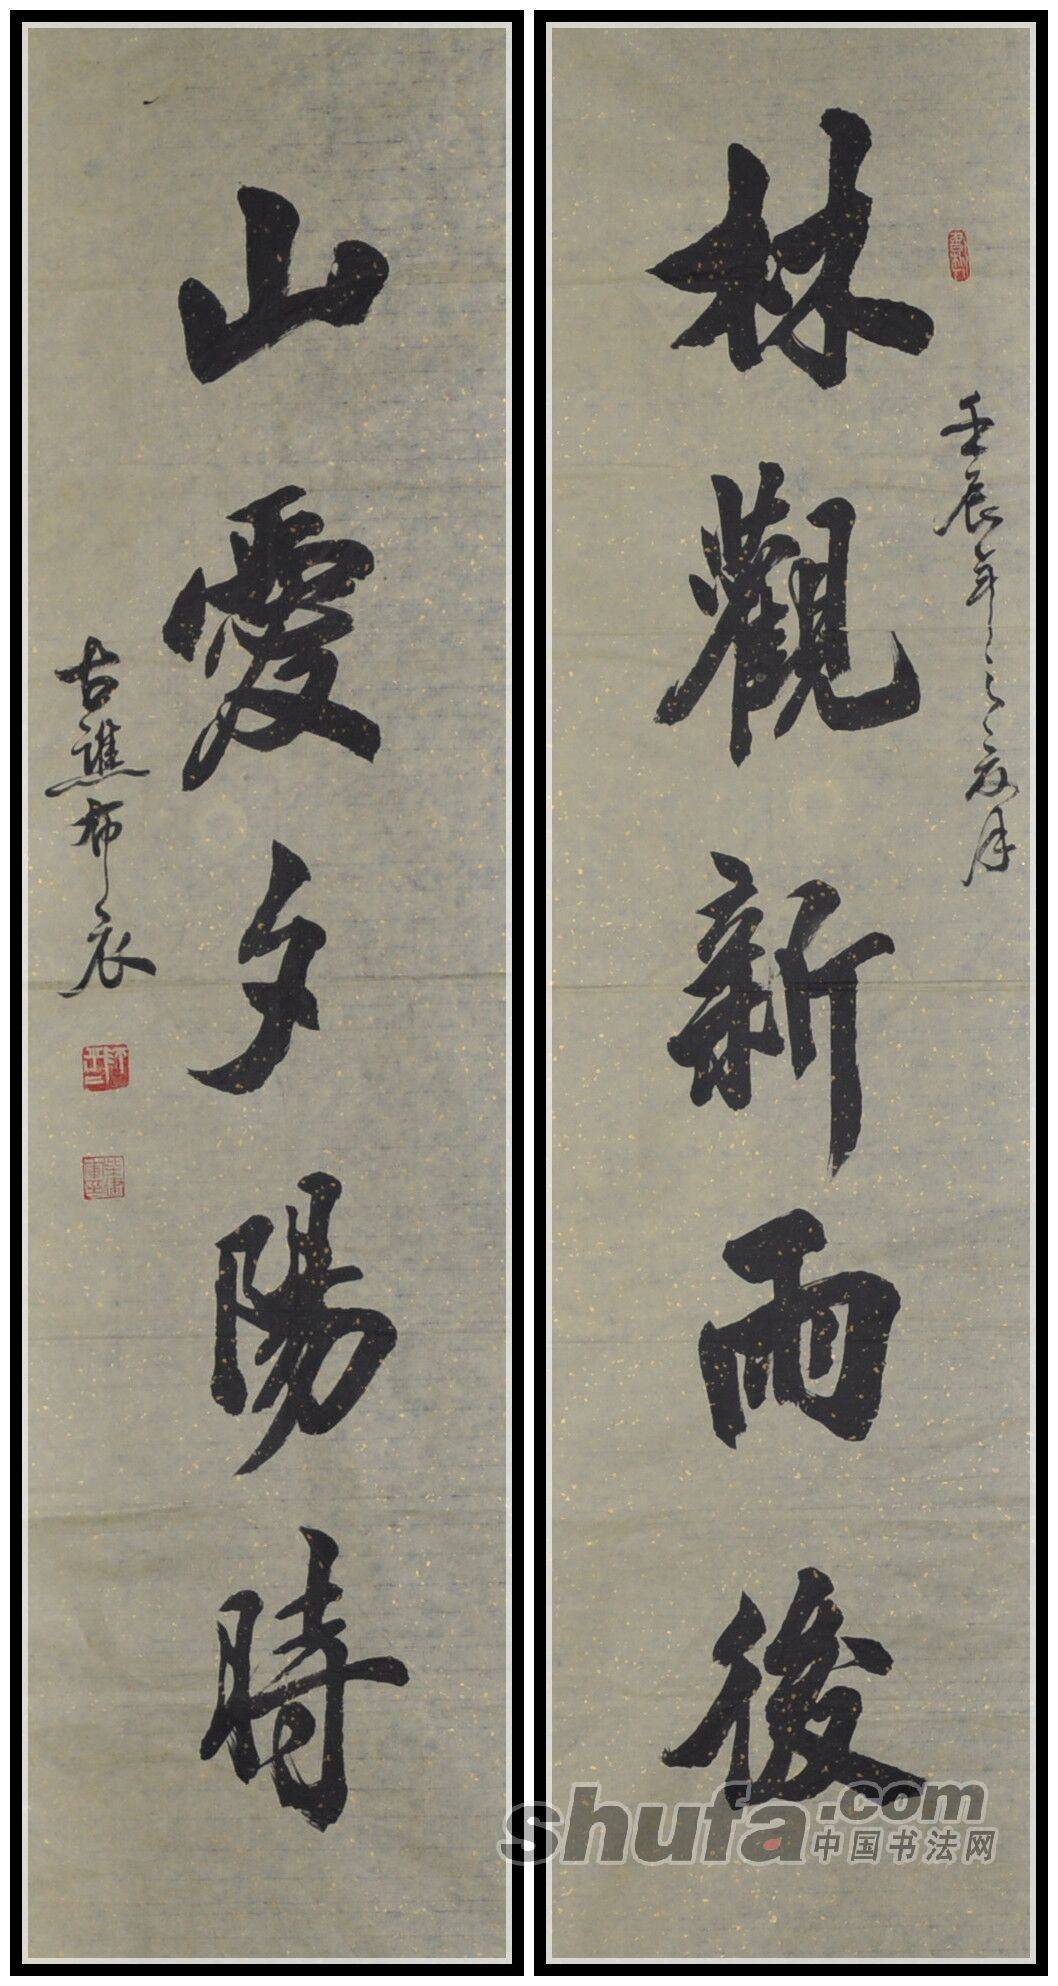 壬辰年之夏月
林觀新雨後
山愛夕陽時
古譙布衣
shufa.com
中国书法网